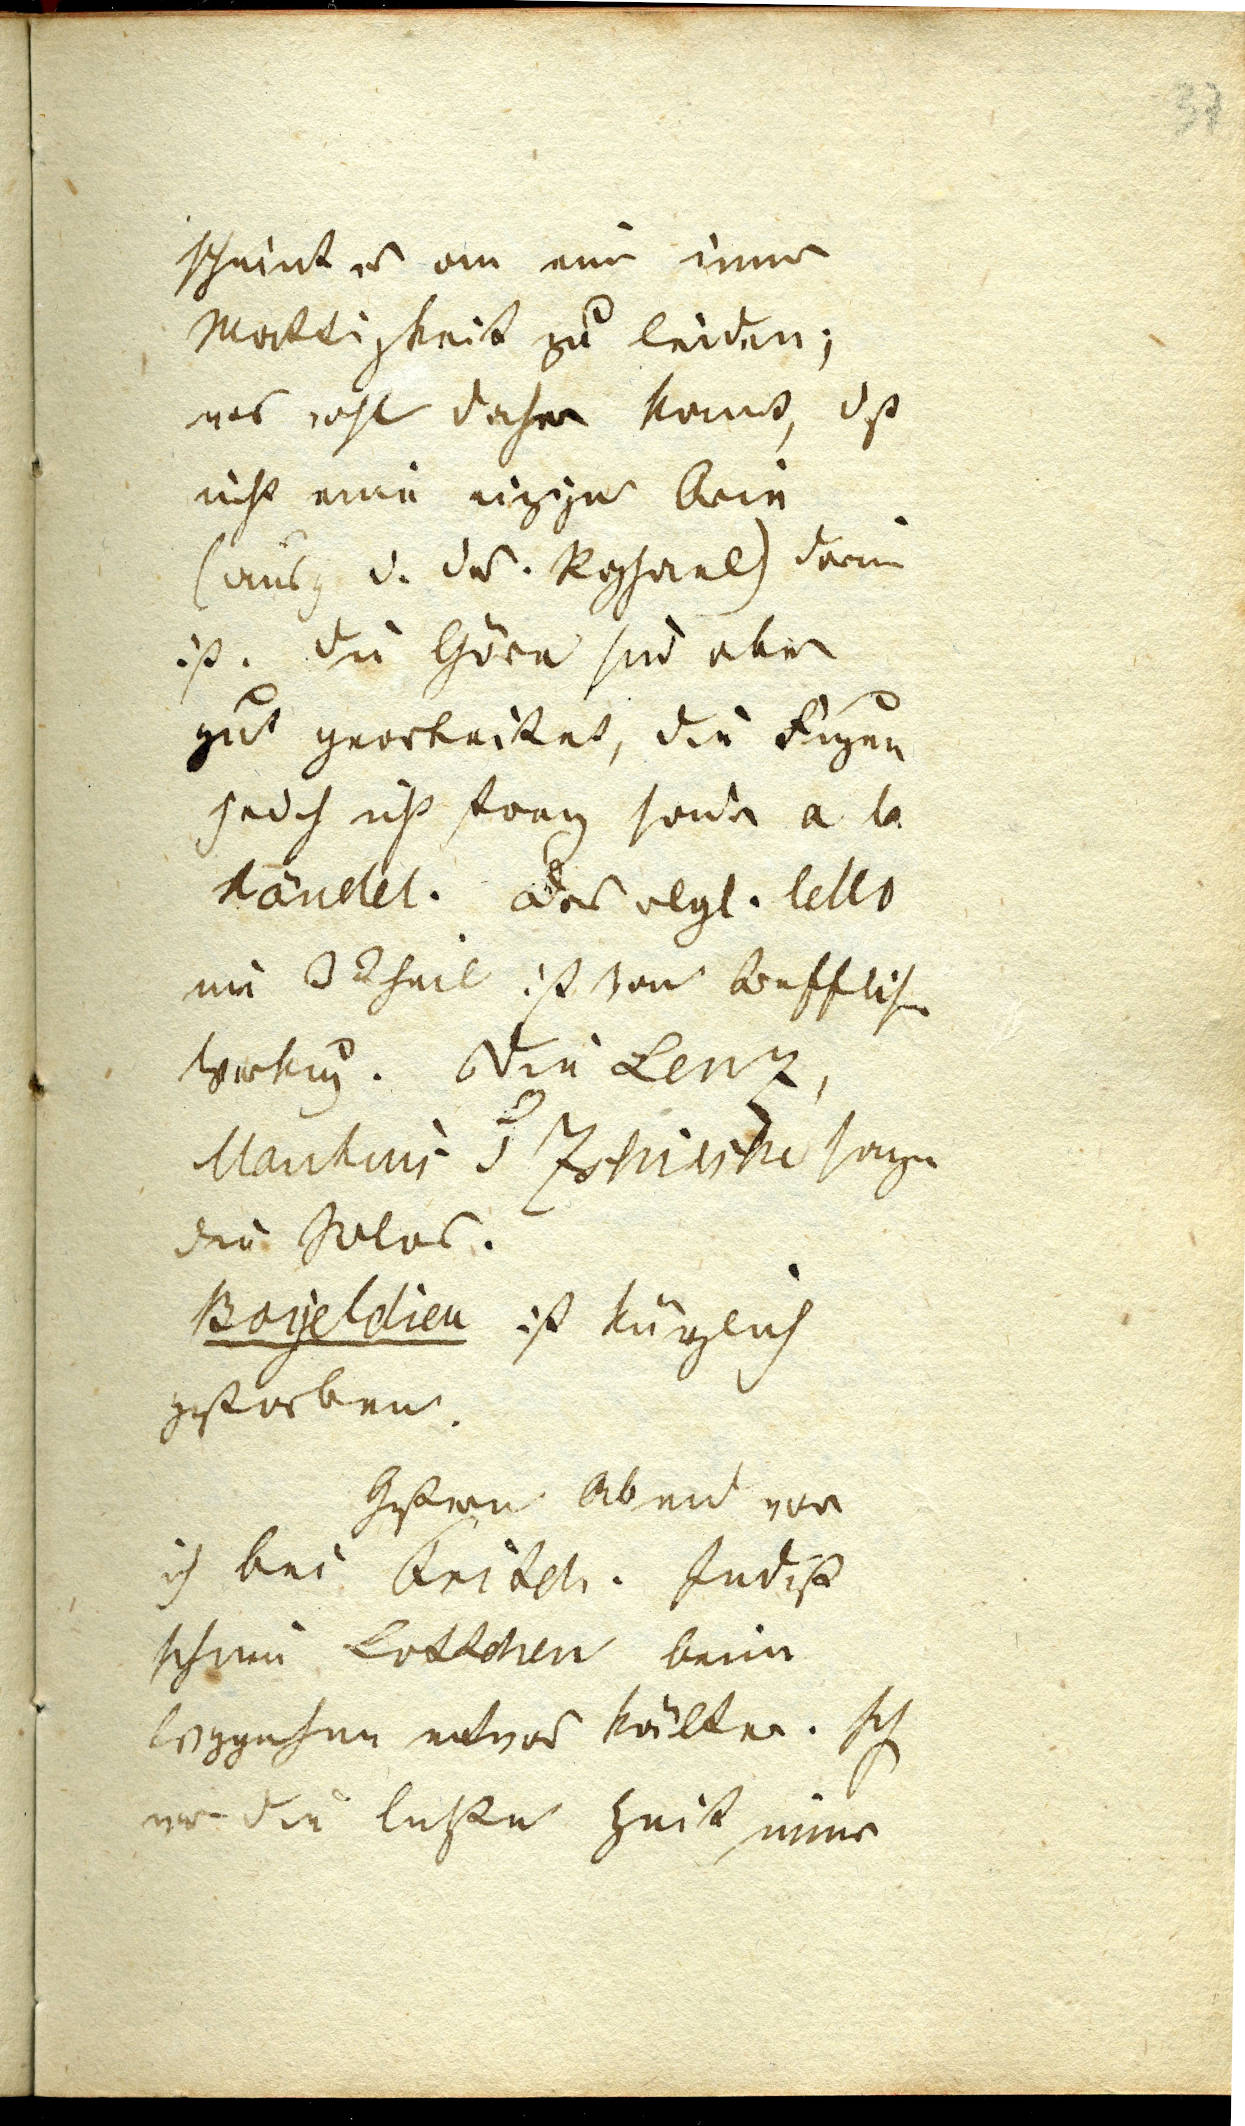 37
scheint es an einer innern
Mattigkeit zu leiden;
was wohl daher komt, dß
nicht eine einzige Arie
(ausg d. des. Raphael) darin
ist. Die Chöre sind aber
gut gearbeitet, die Fugen
jedch nicht streng sonder a la
Händel. Das obgl. Cello
im 3 Theil ist von trefflicher
Wirkung. Die Lenz,
Mantius & Zschiesche sangen
die Solos.
Boyeldieu ist kürzlich
gestorben.
Gestern Abend war
ich bei Fritch. Indeß
schien Lottchen beim
Weggehen etwas kälter. Ich
war die letzte Zeit immer